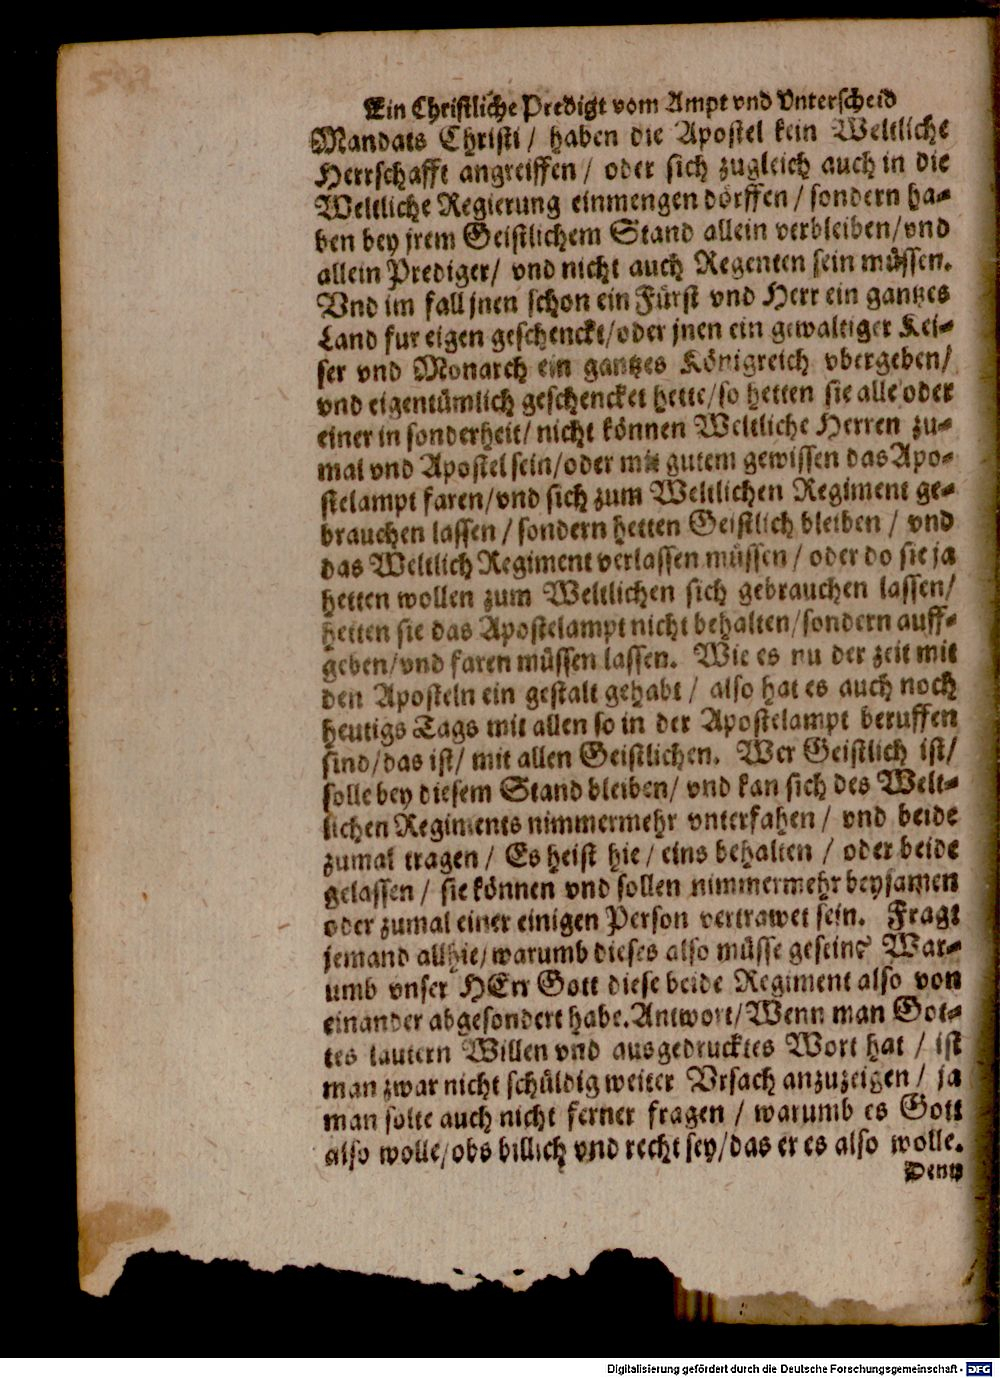 Ein Christliche Predigt vom Ampt vnd Vnterscheid
Mandats Christi / haben die Apostel kein Weltliche
Herrschafft angreiffen / oder sich zugleich auch in die
Weltliche Regierung einmengen dörffen / sondern ha-
ben bey jrem Geistlichem Stand allein verbleiben/vnd
allein Prediger/ vnd nicht auch Regenten sein müssen.
Vnd im fall jnen schon ein Fürst vnd Herr ein gantzes
Land fur eigen geschenckt/oder jnen ein gewaltiger Kei-
ser vnd Monarch ein gantzes Königreich vbergeben/
vnd eigentümlich geschencket hette/so hetten sie alle oder
einer in sonderheit/ nicht können Weltliche Herren zu-
mal vnd Apostel sein/oder mit gutem gewissen das Apo-
stelampt faren/vnd sich zum Weltlichen Regiment ge-
brauchen lassen / sondern hetten Geistlich bleiben / vnd
das Weltlich Regiment verlassen müssen / oder do sie ja
hetten wollen zum Weltlichen sich gebrauchen lassen/
hetten sie das Apostelampt nicht behalten/sondern auff-
geben/vnd faren müssen lassen. Wie es nu der zeit mit
den Aposteln ein gestalt gehabt / also hat es auch noch
heutigs Tags mit allen so in der Apostelampt beruffen
sind/das ist/ mit allen Geistlichen. Wer Geistlich ist/
solle bey diesem Stand bleiben/ vnd kan sich des Welt-
lichen Regiments nimmermehr vnterfahen / vnd beide
zumal tragen / Es heist hie / eins behalten / oder beide
gelassen / sie können vnd sollen nimmermehr beysamen
oder zumal einer einigen Person vertrawet sein. Fragt
jemand allhie/ warumb dieses also müsse gesein? War-
umb vnser HErr Gott diese beide Regiment also von
einander abgesondert habe. Antwort/ Wenn man Got-
tes lautern Willen vnd ausgedrucktes Wort hat / ist
man zwar nicht schüldig weiter Vrsach anzuzeigen / ja
man solte auch nicht ferner fragen / warumb es Gott
also wolle/obs billich vnd recht sey/das er es also wolle.
Digitalisierung gefördert durch die Deutsche Forschungsgemeinschaft - DFG